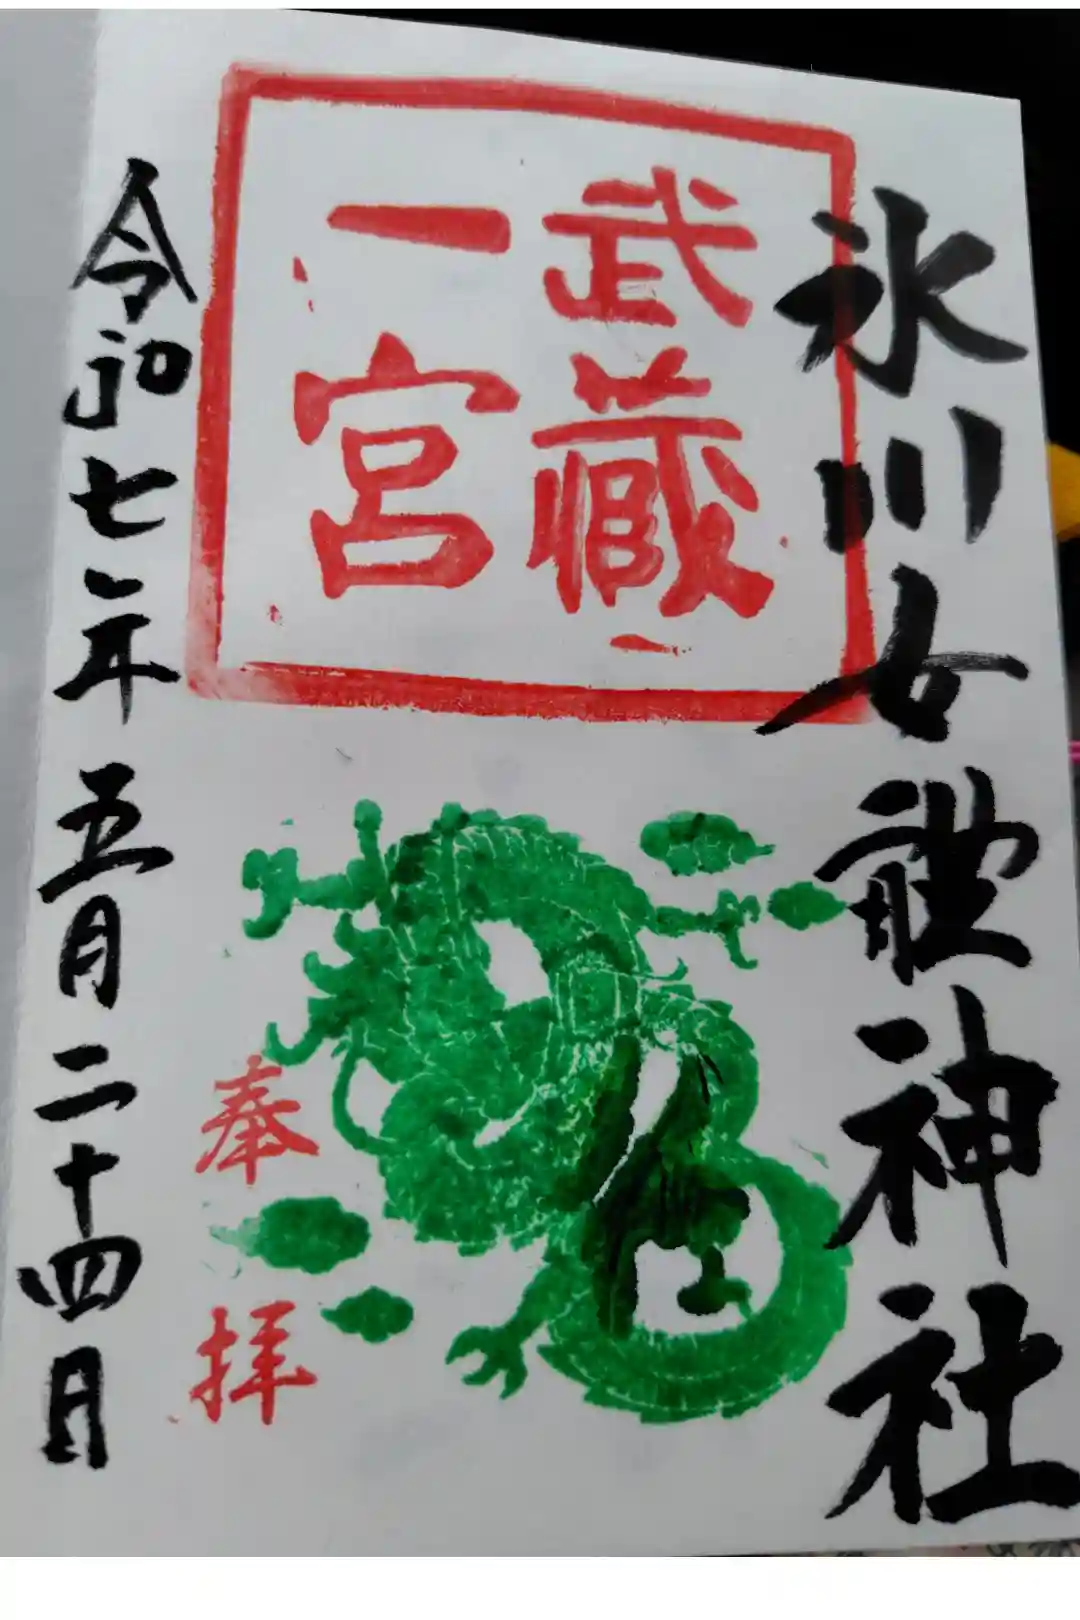 氷川女體神社
武藏
一宮
奉拝
令和七年五月二十四日